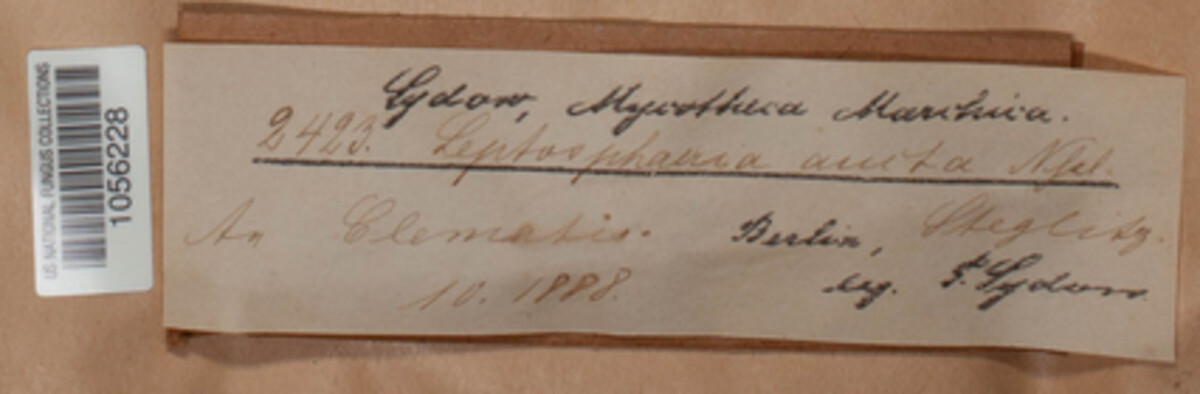 US NATIONAL FUNGUS COLLECTIONS
1056228
Sydow, Mycotheca Marchica.
2423. Leptosphaeria acuta
An Clematis. Berlin, Steglitz.
10. 1888. leg. P. Sydow